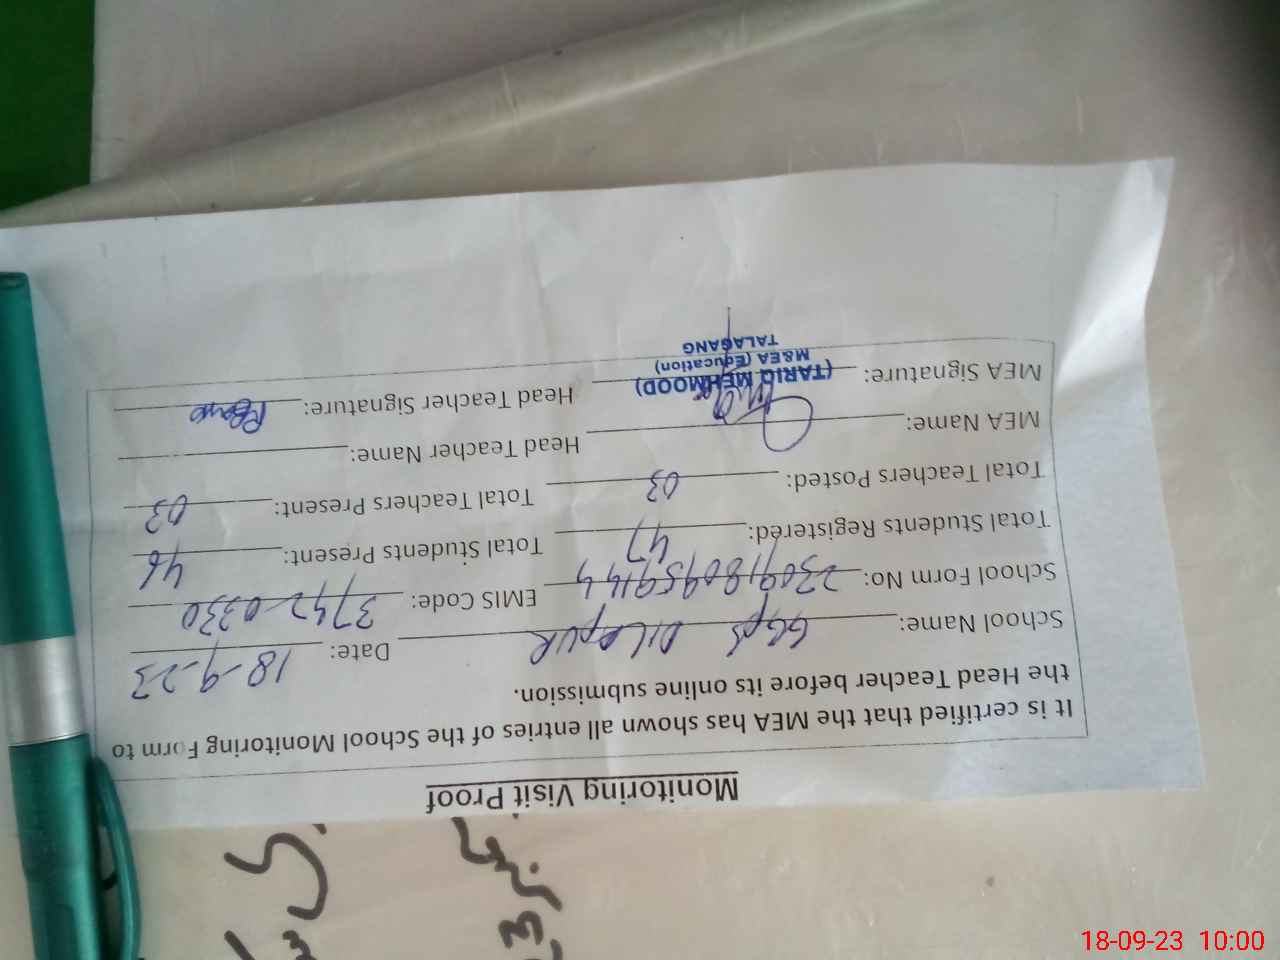 Monitoring Visit Proof
It is certified that the MEA has shown all entries of the School Monitoring Form to
the Head Teacher before its online submission.
School Name: GGPS DILAPUR Date: 18-9-23
School Form No: 2309180959144 EMIS Code: 37420330
Total Students Registered: 47 Total Students Present: 46
Total Teachers Posted: 03 Total Teachers Present: 03
MEA Name: Head Teacher Name:
MEA Signature: Head Teacher Signature:
(TARIQ MEHMOOD)
M&EA (Education)
TALAGANG
18-09-23 10:00